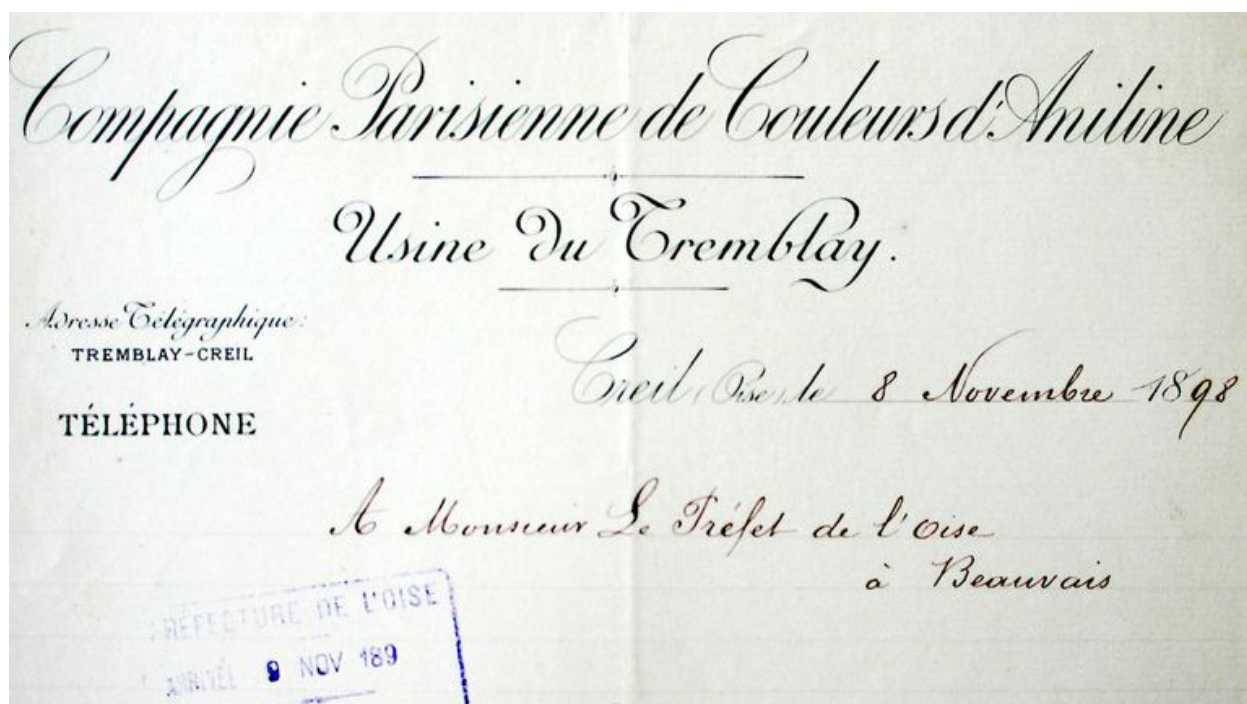 Compagnie Parisienne de Couleurs d'Aniline
Usine du Tremblay.
Adresse Télégraphique:
TREMBLAY-CREIL
TÉLÉPHONE
Creil (Oise), le 8 Novembre 1898
A Monsieur Le Préfet de l'Oise
à Beauvais
PRÉFECTURE DE L'OISE
ARRIVÉE 9 NOV 189